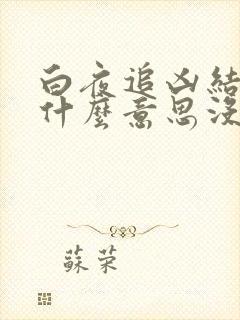 白夜追凶結
什麼意思沒
蘇荣